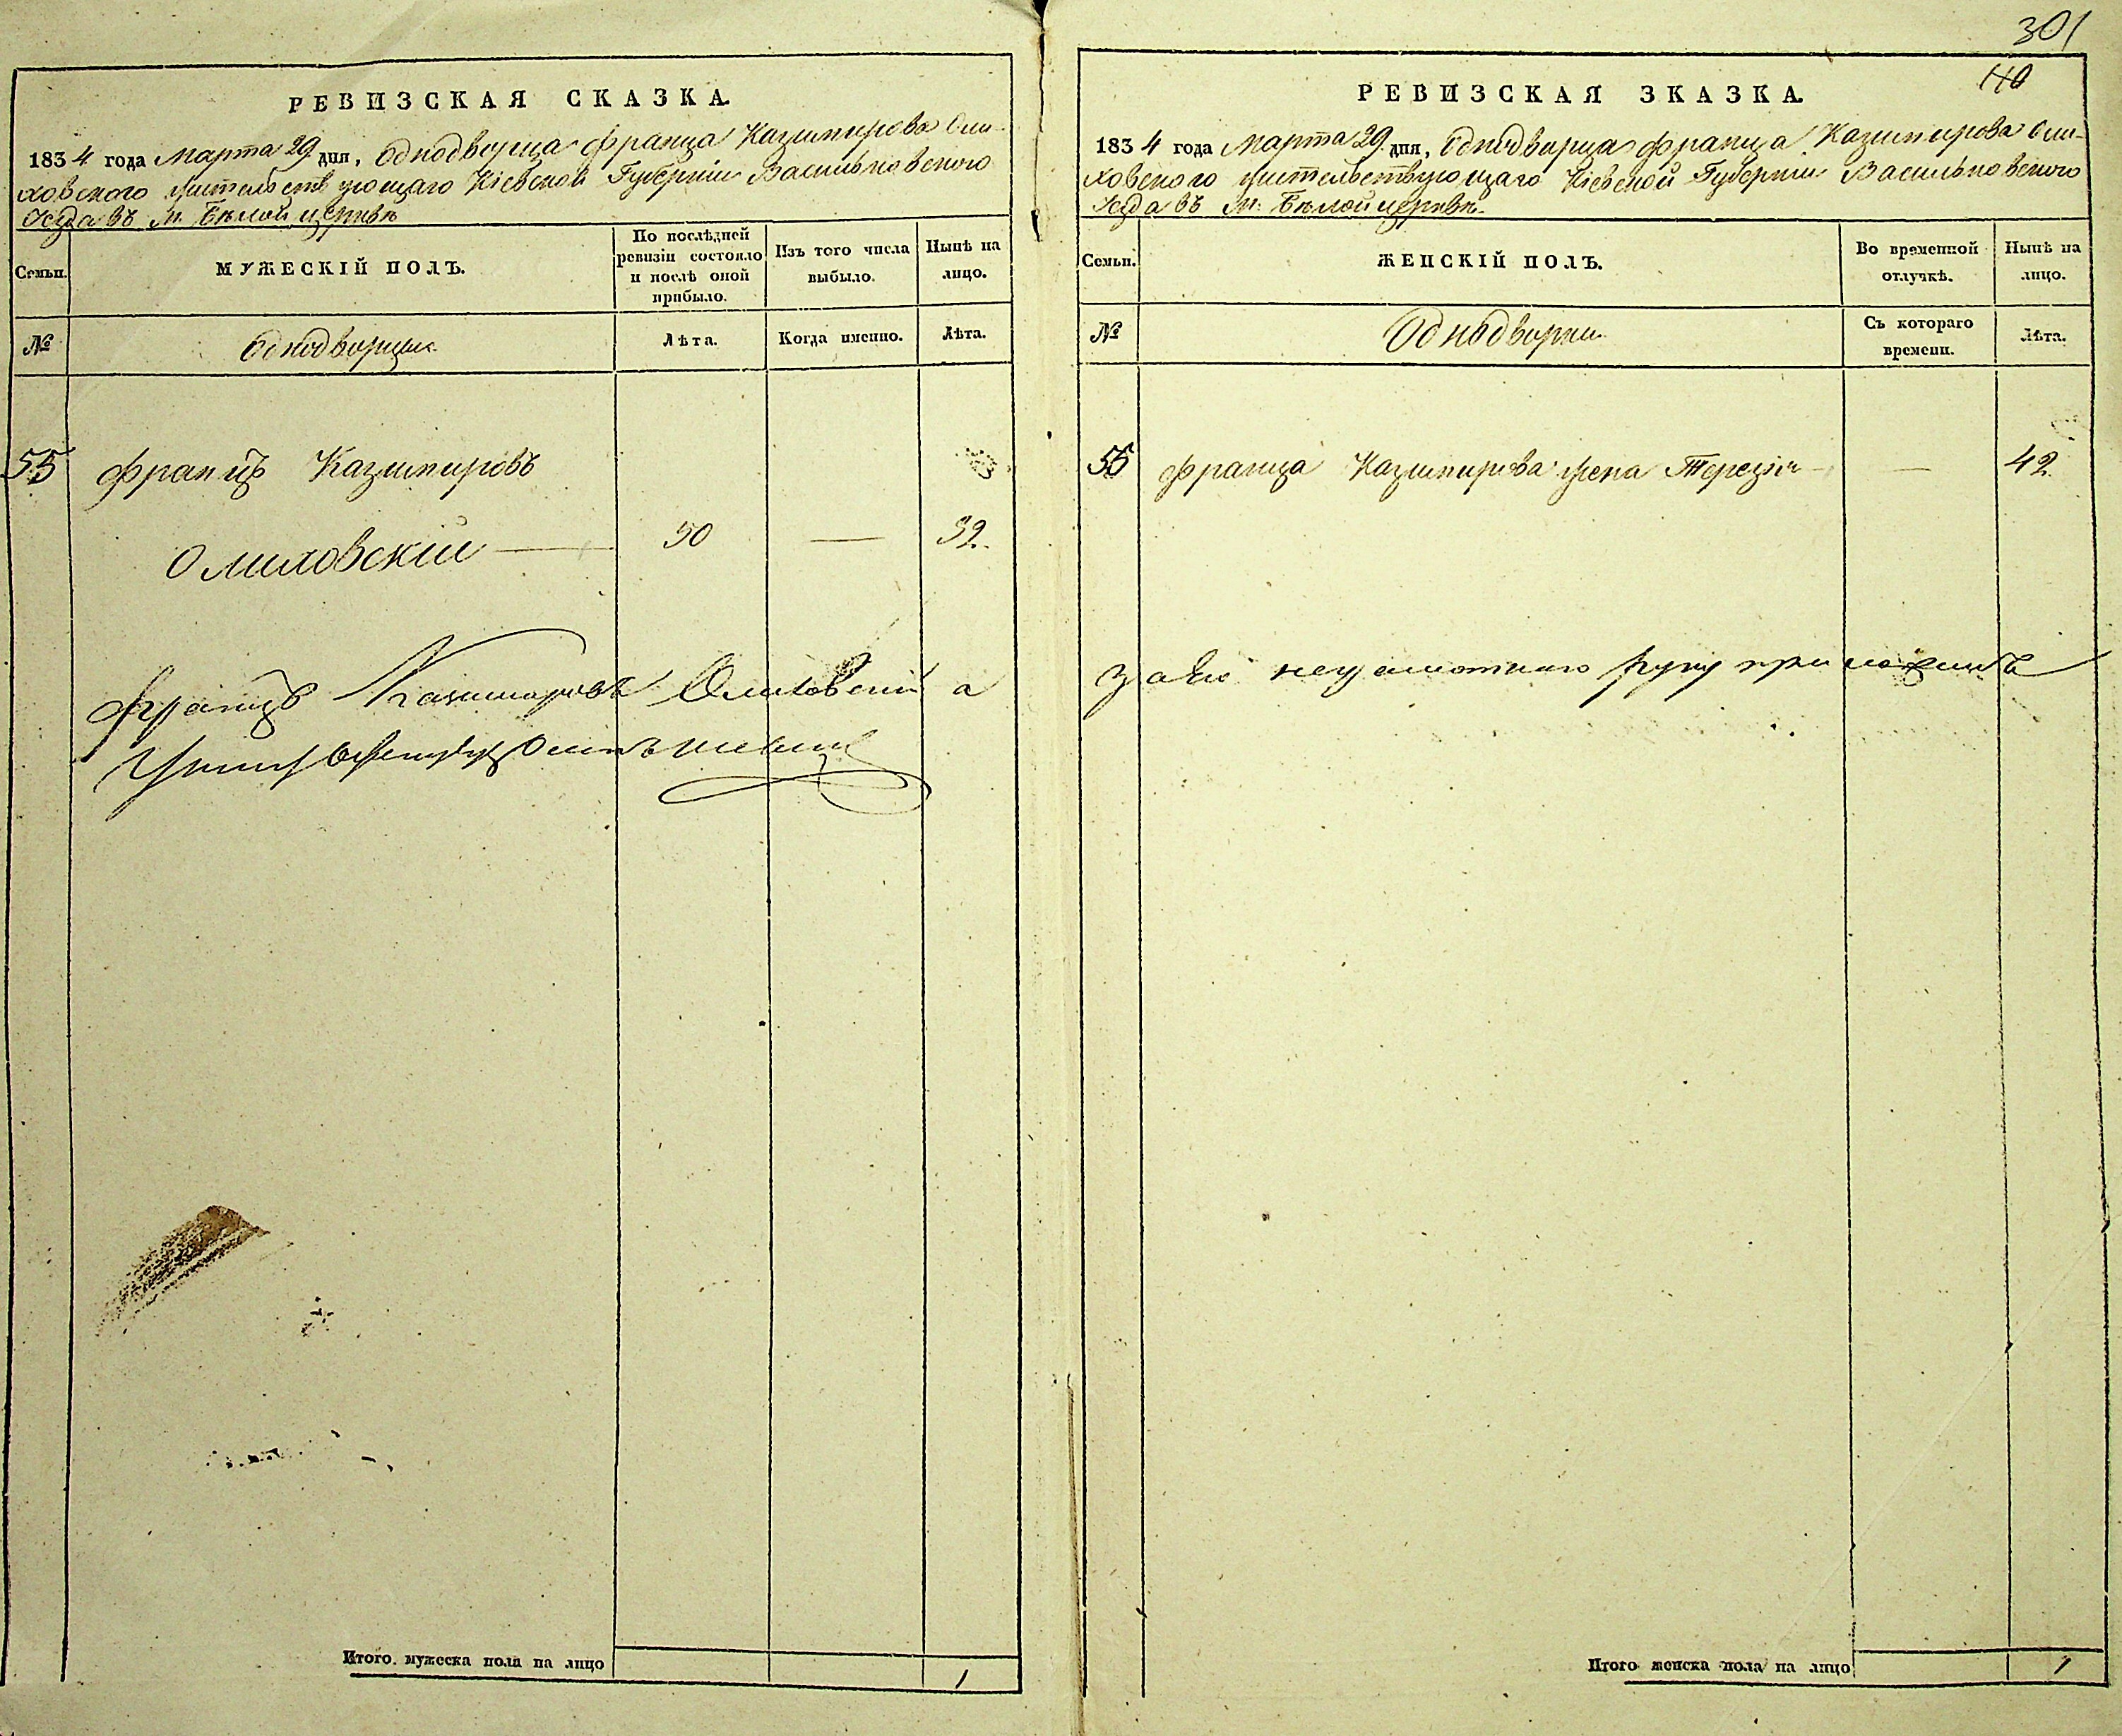 301
140
РЕВИЗСКАЯ СКАЗКА.
1834 года Марта 29 дня, Однодворца Франца Казимирова Оми-
ховского жительствующаго Кіевской Губерніи Васильковского
уезда въ м. Бѣлой церквѣ
Семьи.
МУЖЕСКІЙ ПОЛЪ.
По послѣдней
ревизіи состояло
и послѣ оной
прибыло.
Изъ того числа
выбыло.
Нынѣ на
лицо.
№
Однодворцы
Лѣта.
Когда именно.
Лѣта.
55
Францъ Казимировъ
Омиховскій
50
—
52.
Францъ Казимировъ Омиховскій а
Итого мужеска пола на лицо
1
РЕВИЗСКАЯ ЗКАЗКА.
1834 года Марта 29 дня, Однодворца Франца Казимирова Оми-
ховского жительствующаго Кіевской Губерніи Васильковского
уезда въ м. Бѣлой церквѣ.
Семьи.
ЖЕНСКІЙ ПОЛЪ.
Во временной
отлучкѣ.
Нынѣ на
лицо.
№
Однодворки
Съ котораго
времени.
Лѣта.
55
Франца Казимирова жена Терезія
—
42.
за его неграмотного руку приложилъ
Итого женска пола на лицо
1